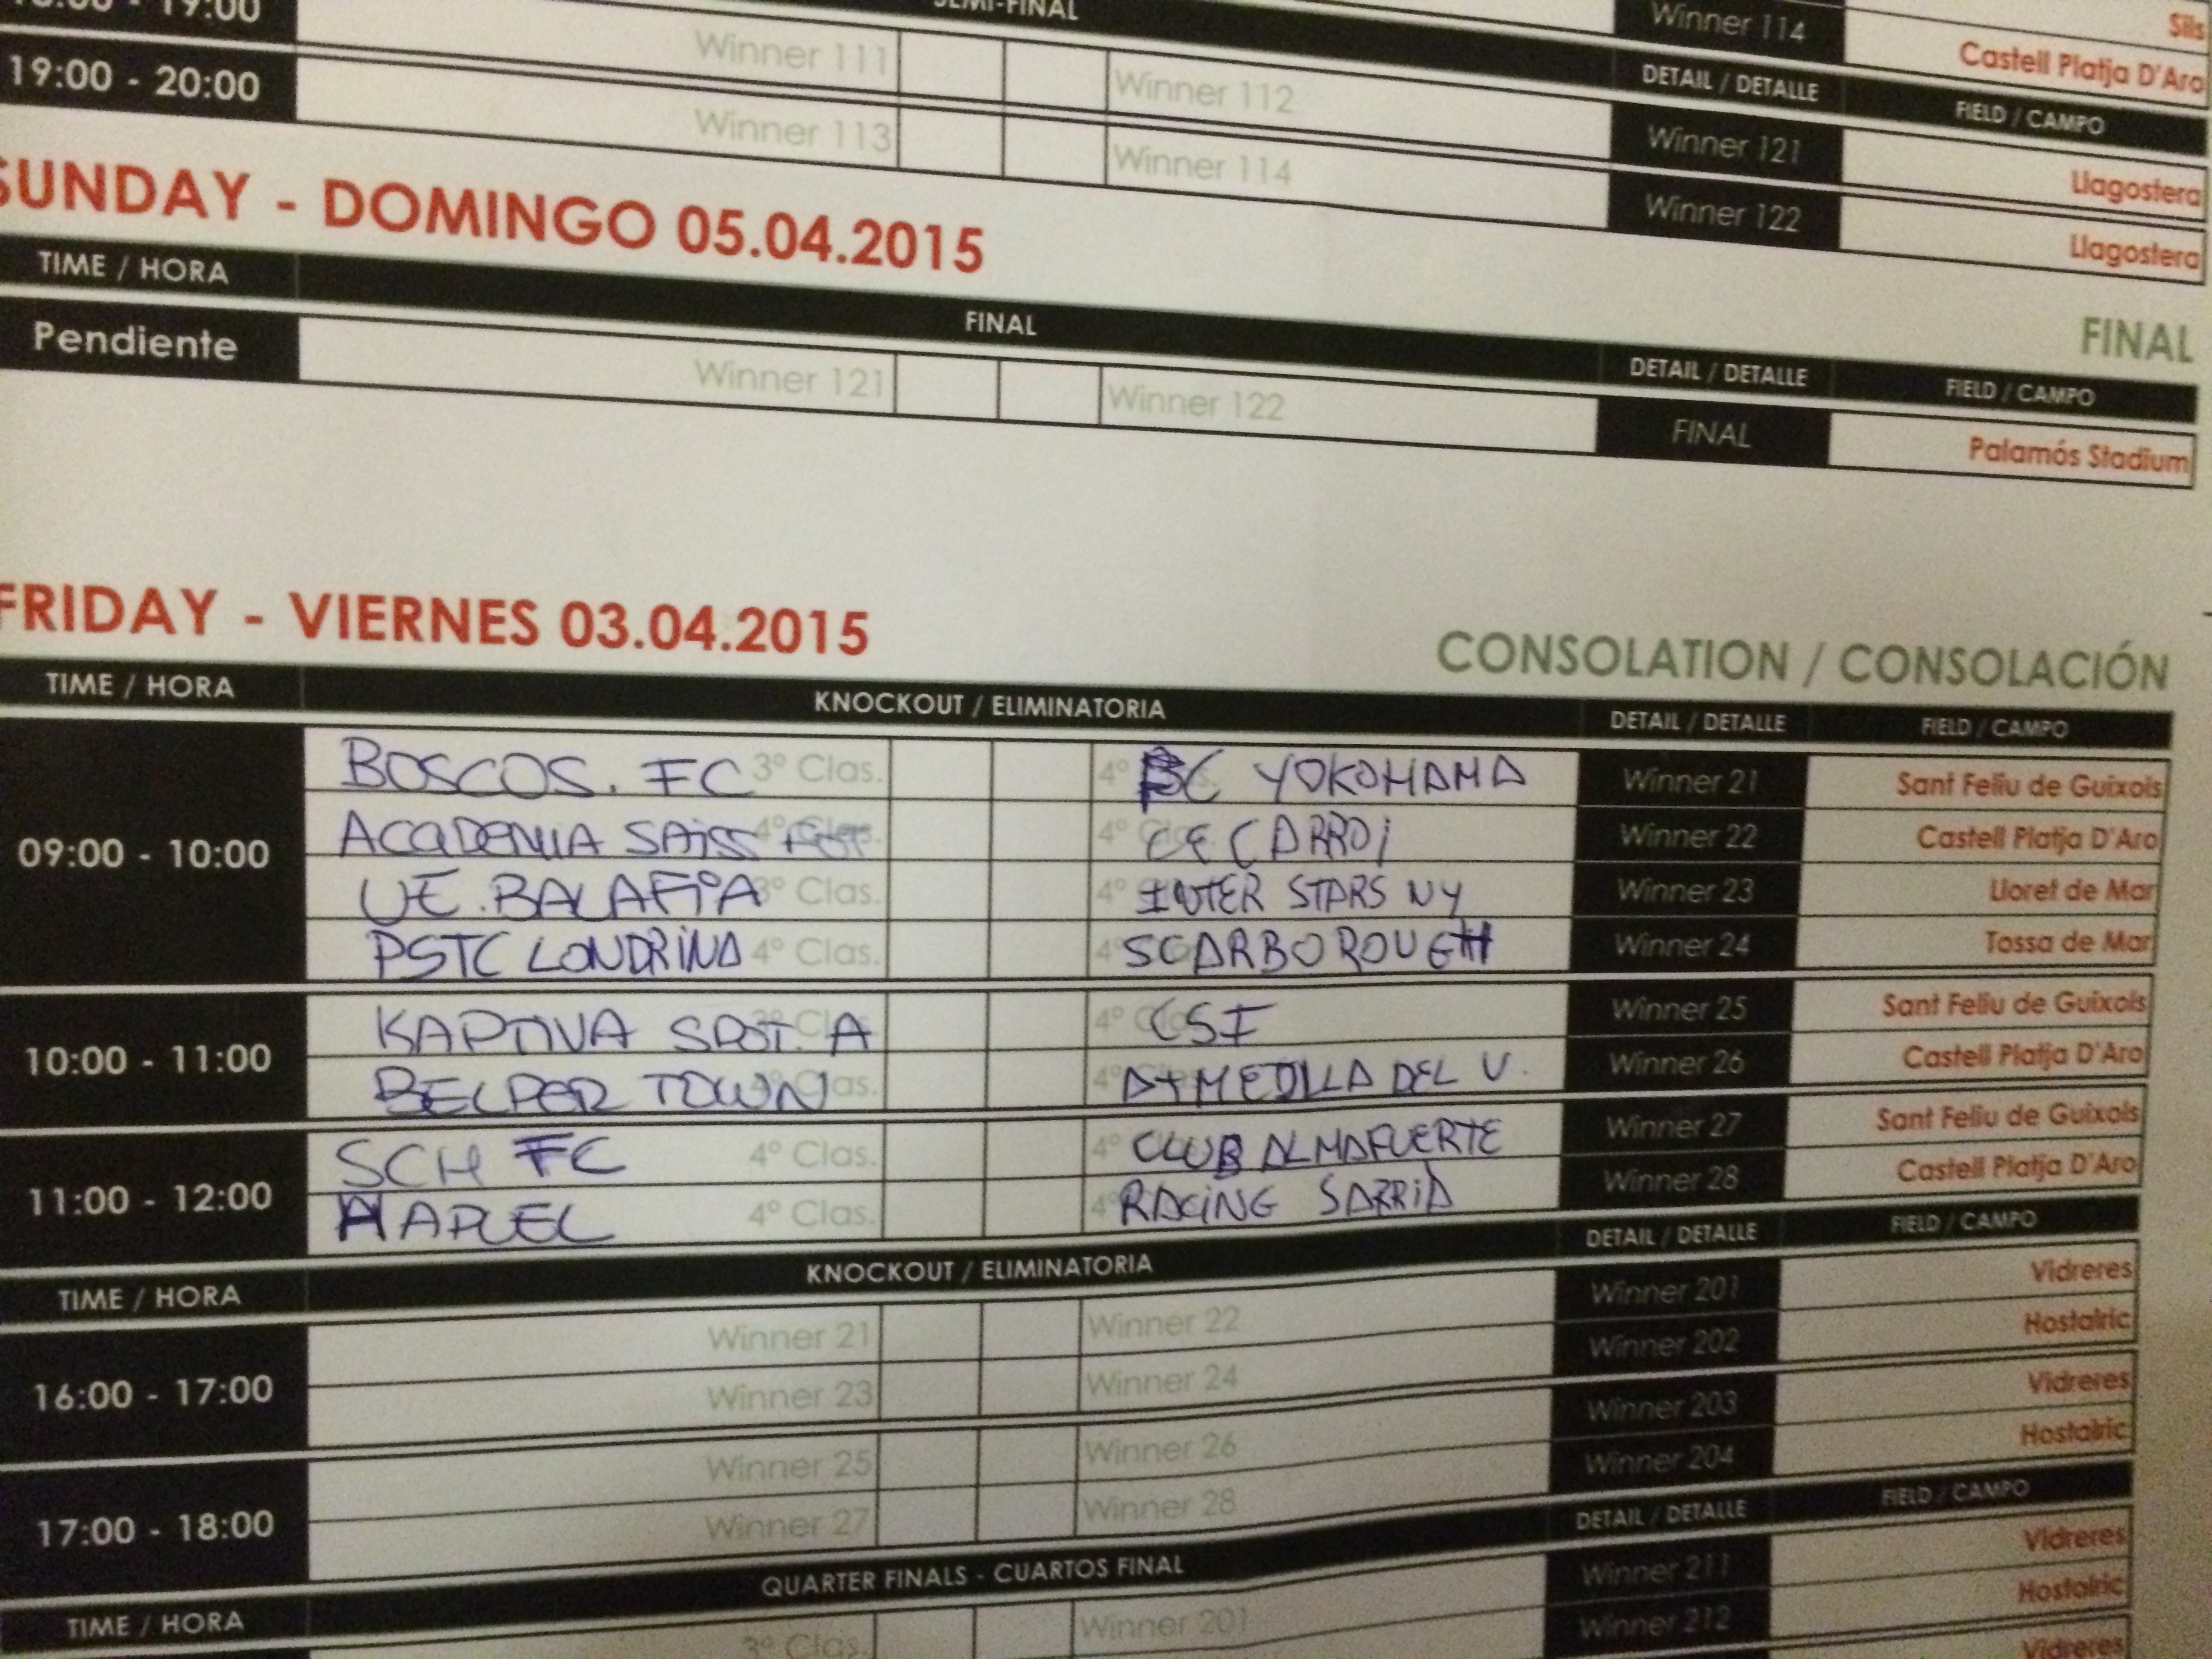 19:00
SEMI-FINAL
Winner 114
Sils
Castell Platja D'Aro
19:00 - 20:00
Winner 111
Winner 112
DETAIL / DETALLE
FIELD / CAMPO
Winner 121
Llagostera
Winner 113
Winner 114
Winner 122
Llagostera
SUNDAY - DOMINGO 05.04.2015
FINAL
TIME / HORA
FINAL
DETAIL / DETALLE
FIELD / CAMPO
Pendiente
Winner 121
Winner 122
FINAL
Palamós Stadium
FRIDAY - VIERNES 03.04.2015
CONSOLATION / CONSOLACIÓN
TIME / HORA
KNOCKOUT / ELIMINATORIA
DETAIL / DETALLE
FIELD / CAMPO
09:00 - 10:00
BOSCOS. FC 3º Clas. 4º YOKOHAMA Winner 21 Sant Feliu de Guixols
ACADEMIA 4º Clas. 4º Winner 22 Castell Platja D'Aro
UE. BALAFIA 3º Clas. 4º INTER STARS NY Winner 23 Lloret de Mar
PSTC LONDRINA 4º Clas. 4º SCARBOROUGH Winner 24 Tossa de Mar
10:00 - 11:00
KAPTIVA SPOT. A 4º CSI Winner 25 Sant Feliu de Guixols
BELPER TOWN 4º DEL V. Winner 26 Castell Platja D'Aro
11:00 - 12:00
SCH FC 4º Clas. 4º CLUB ALMAFUERTE Winner 27 Sant Feliu de Guixols
4º Clas. 4º RACING SARRIA Winner 28 Castell Platja D'Aro
TIME / HORA
KNOCKOUT / ELIMINATORIA
DETAIL / DETALLE
FIELD / CAMPO
16:00 - 17:00
Winner 21 Winner 22 Winner 201 Vidreres
Winner 23 Winner 24 Winner 202 Hostalric
17:00 - 18:00
Winner 25 Winner 26 Winner 203 Vidreres
Winner 27 Winner 28 Winner 204 Hostalric
TIME / HORA
QUARTER FINALS - CUARTOS FINAL
DETAIL / DETALLE
FIELD / CAMPO
3º Clas. Winner 201 Winner 211 Vidreres
Winner 212 Hostalric
Vidreres